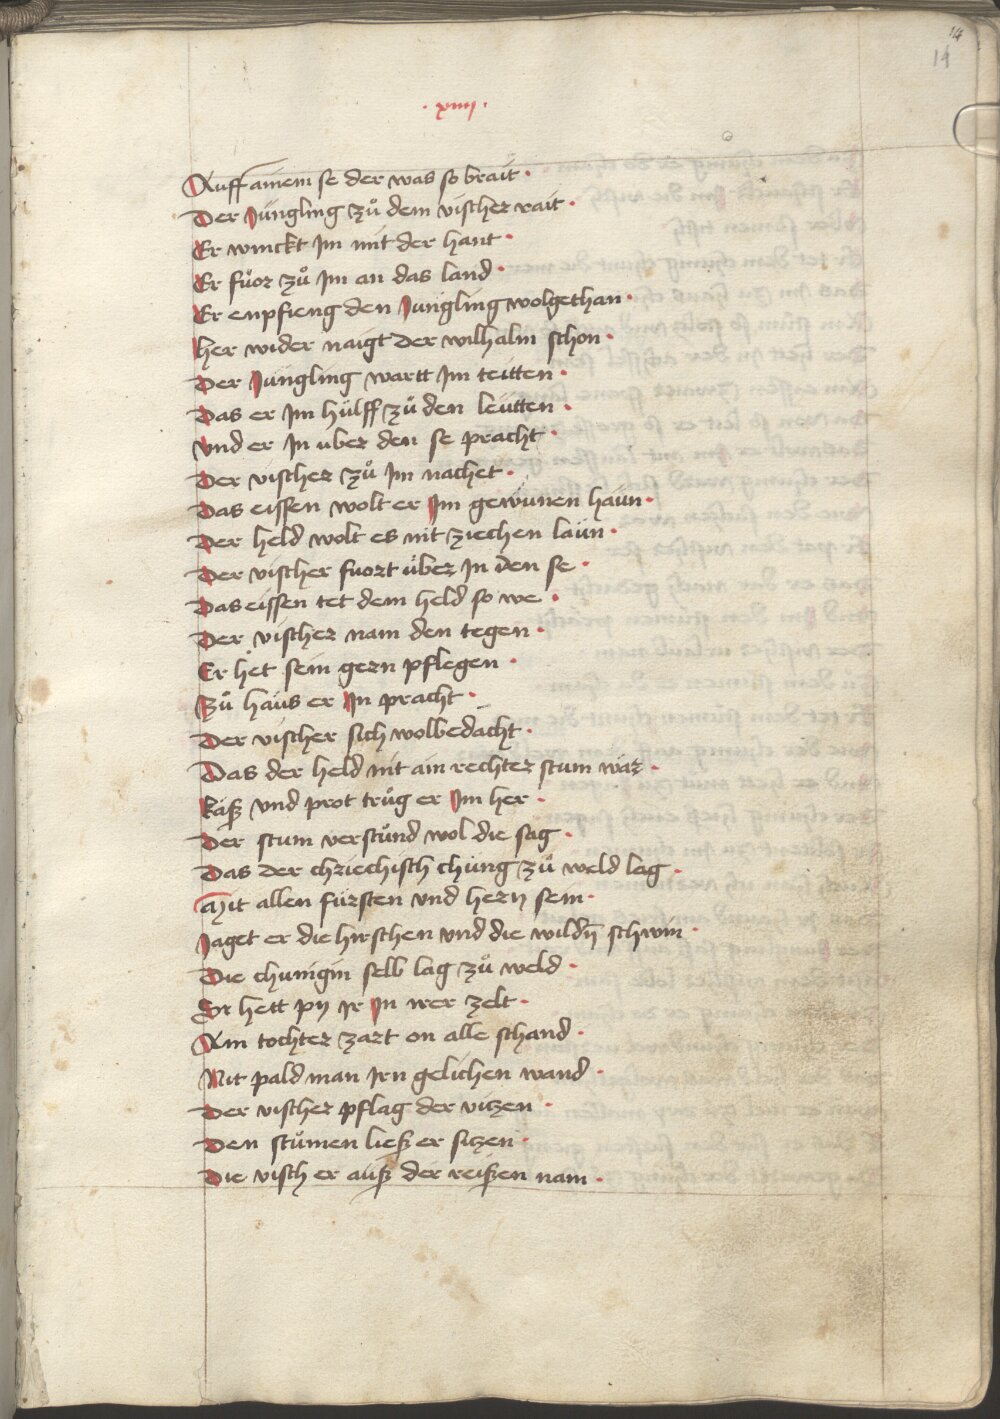 14
14
· xiiij ·
Auff ainem se der was so brait ·
Der Jüngling zuͦ dem vischer rait ·
Er winckt Jm mit der hant ·
Er fuͦor zuͦ Jm an das land ·
Er enpfieng den Jüngling wolgethan ·
her wider naigt der wilhalm schon ·
Der Jüngling wartt Jm teütten ·
Das er Jm hülff zuͦ den leütten ·
vnd er Jn uber den se pracht ·
Der vischer zuͦ Jm nachet ·
Das eissen wolt er Jm gewunen haün ·
Der held wolt es nit ziechen laün ·
Der vischer fuort über Jn den se ·
Das eissen tet dem held so we ·
Der vischer nam den tegen ·
Er het sein gern pflegen ·
Zuͦ haüs er Jn pracht ·
Der vischer sich wolbedacht ·
Das der held nit ain rechter stum wär ·
käß vnd prot truͦg er Jm her ·
Der stum verstuͦnd wol die sag ·
Das der chriechisch chüng zuͦ weld lag ·
Mit allen fürsten vnd hern sein ·
Jaget er die hirschen vnd die wildn̄ schwin ·
Die chunigin selb lag zuͦ weld ·
Er hett py Jr Jn irer zelt ·
Ain tochter zart on alle schand ·
Nit pald man Jrn gelichen wand ·
Der vischer pflag der vitzen ·
Den stuͦmen ließ er sitzen ·
Die visch er auß der reißen nam ·